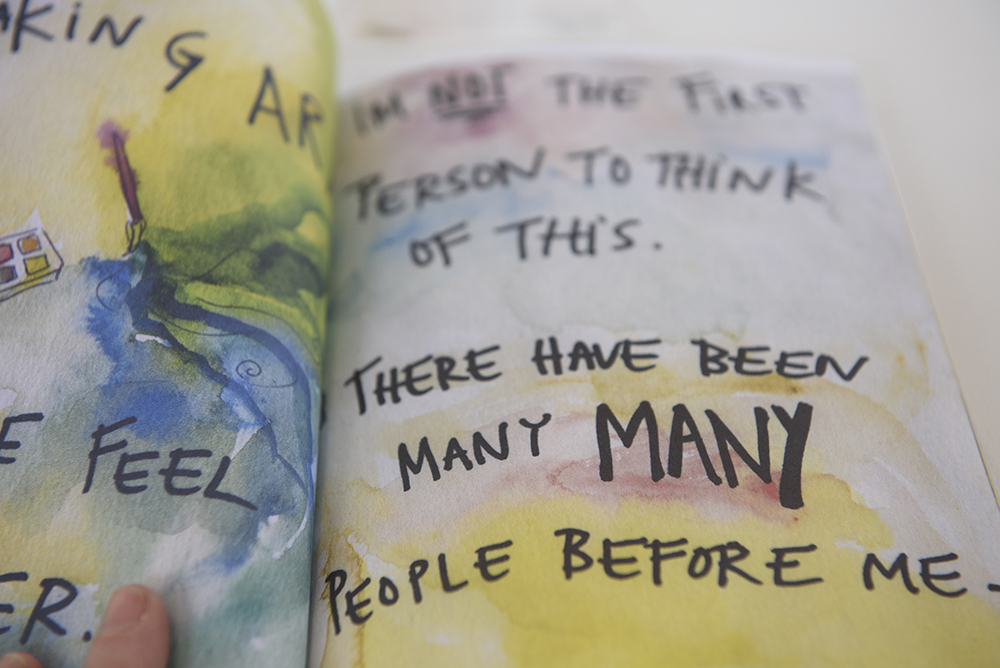 AKING
AR
E FEEL
ER.
IM NOT THE FIRST
PERSON TO THINK
OF THIS.
THERE HAVE BEEN
MANY MANY
PEOPLE BEFORE ME-